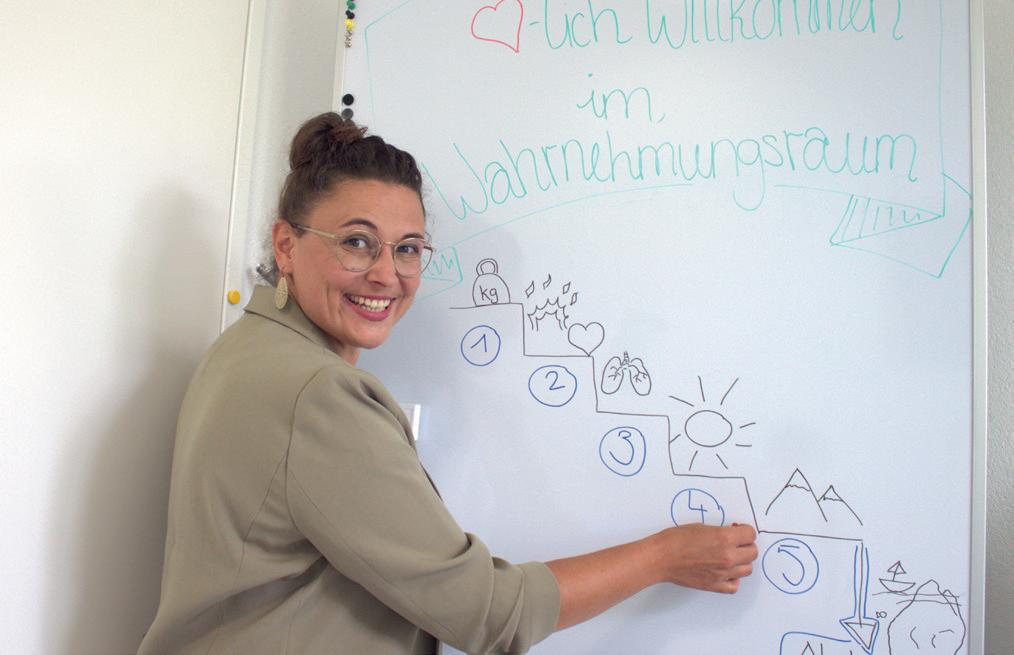 -lich Willkommen
im
Wahrnehmungsraum
kg
1
2
3
4
5